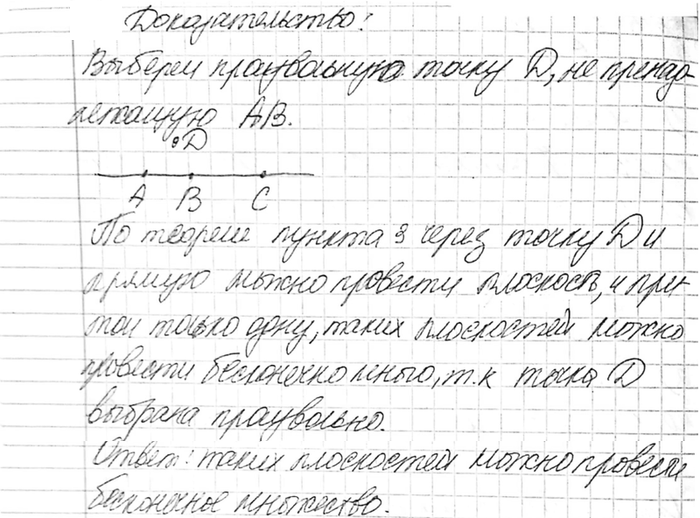 Доказательство:
Выберем праувольную точку D, не пренад-
лежащую AB.
D
A B C
По теореме пункта 3 через точку D и
прямую можно провести плоскость, и при-
том только одну, таких плоскостей можно
провести бесконечно много, т.к точка D
выбрана праувольно.
Ответ: таких плоскостей можно провести
бесконечное множество.